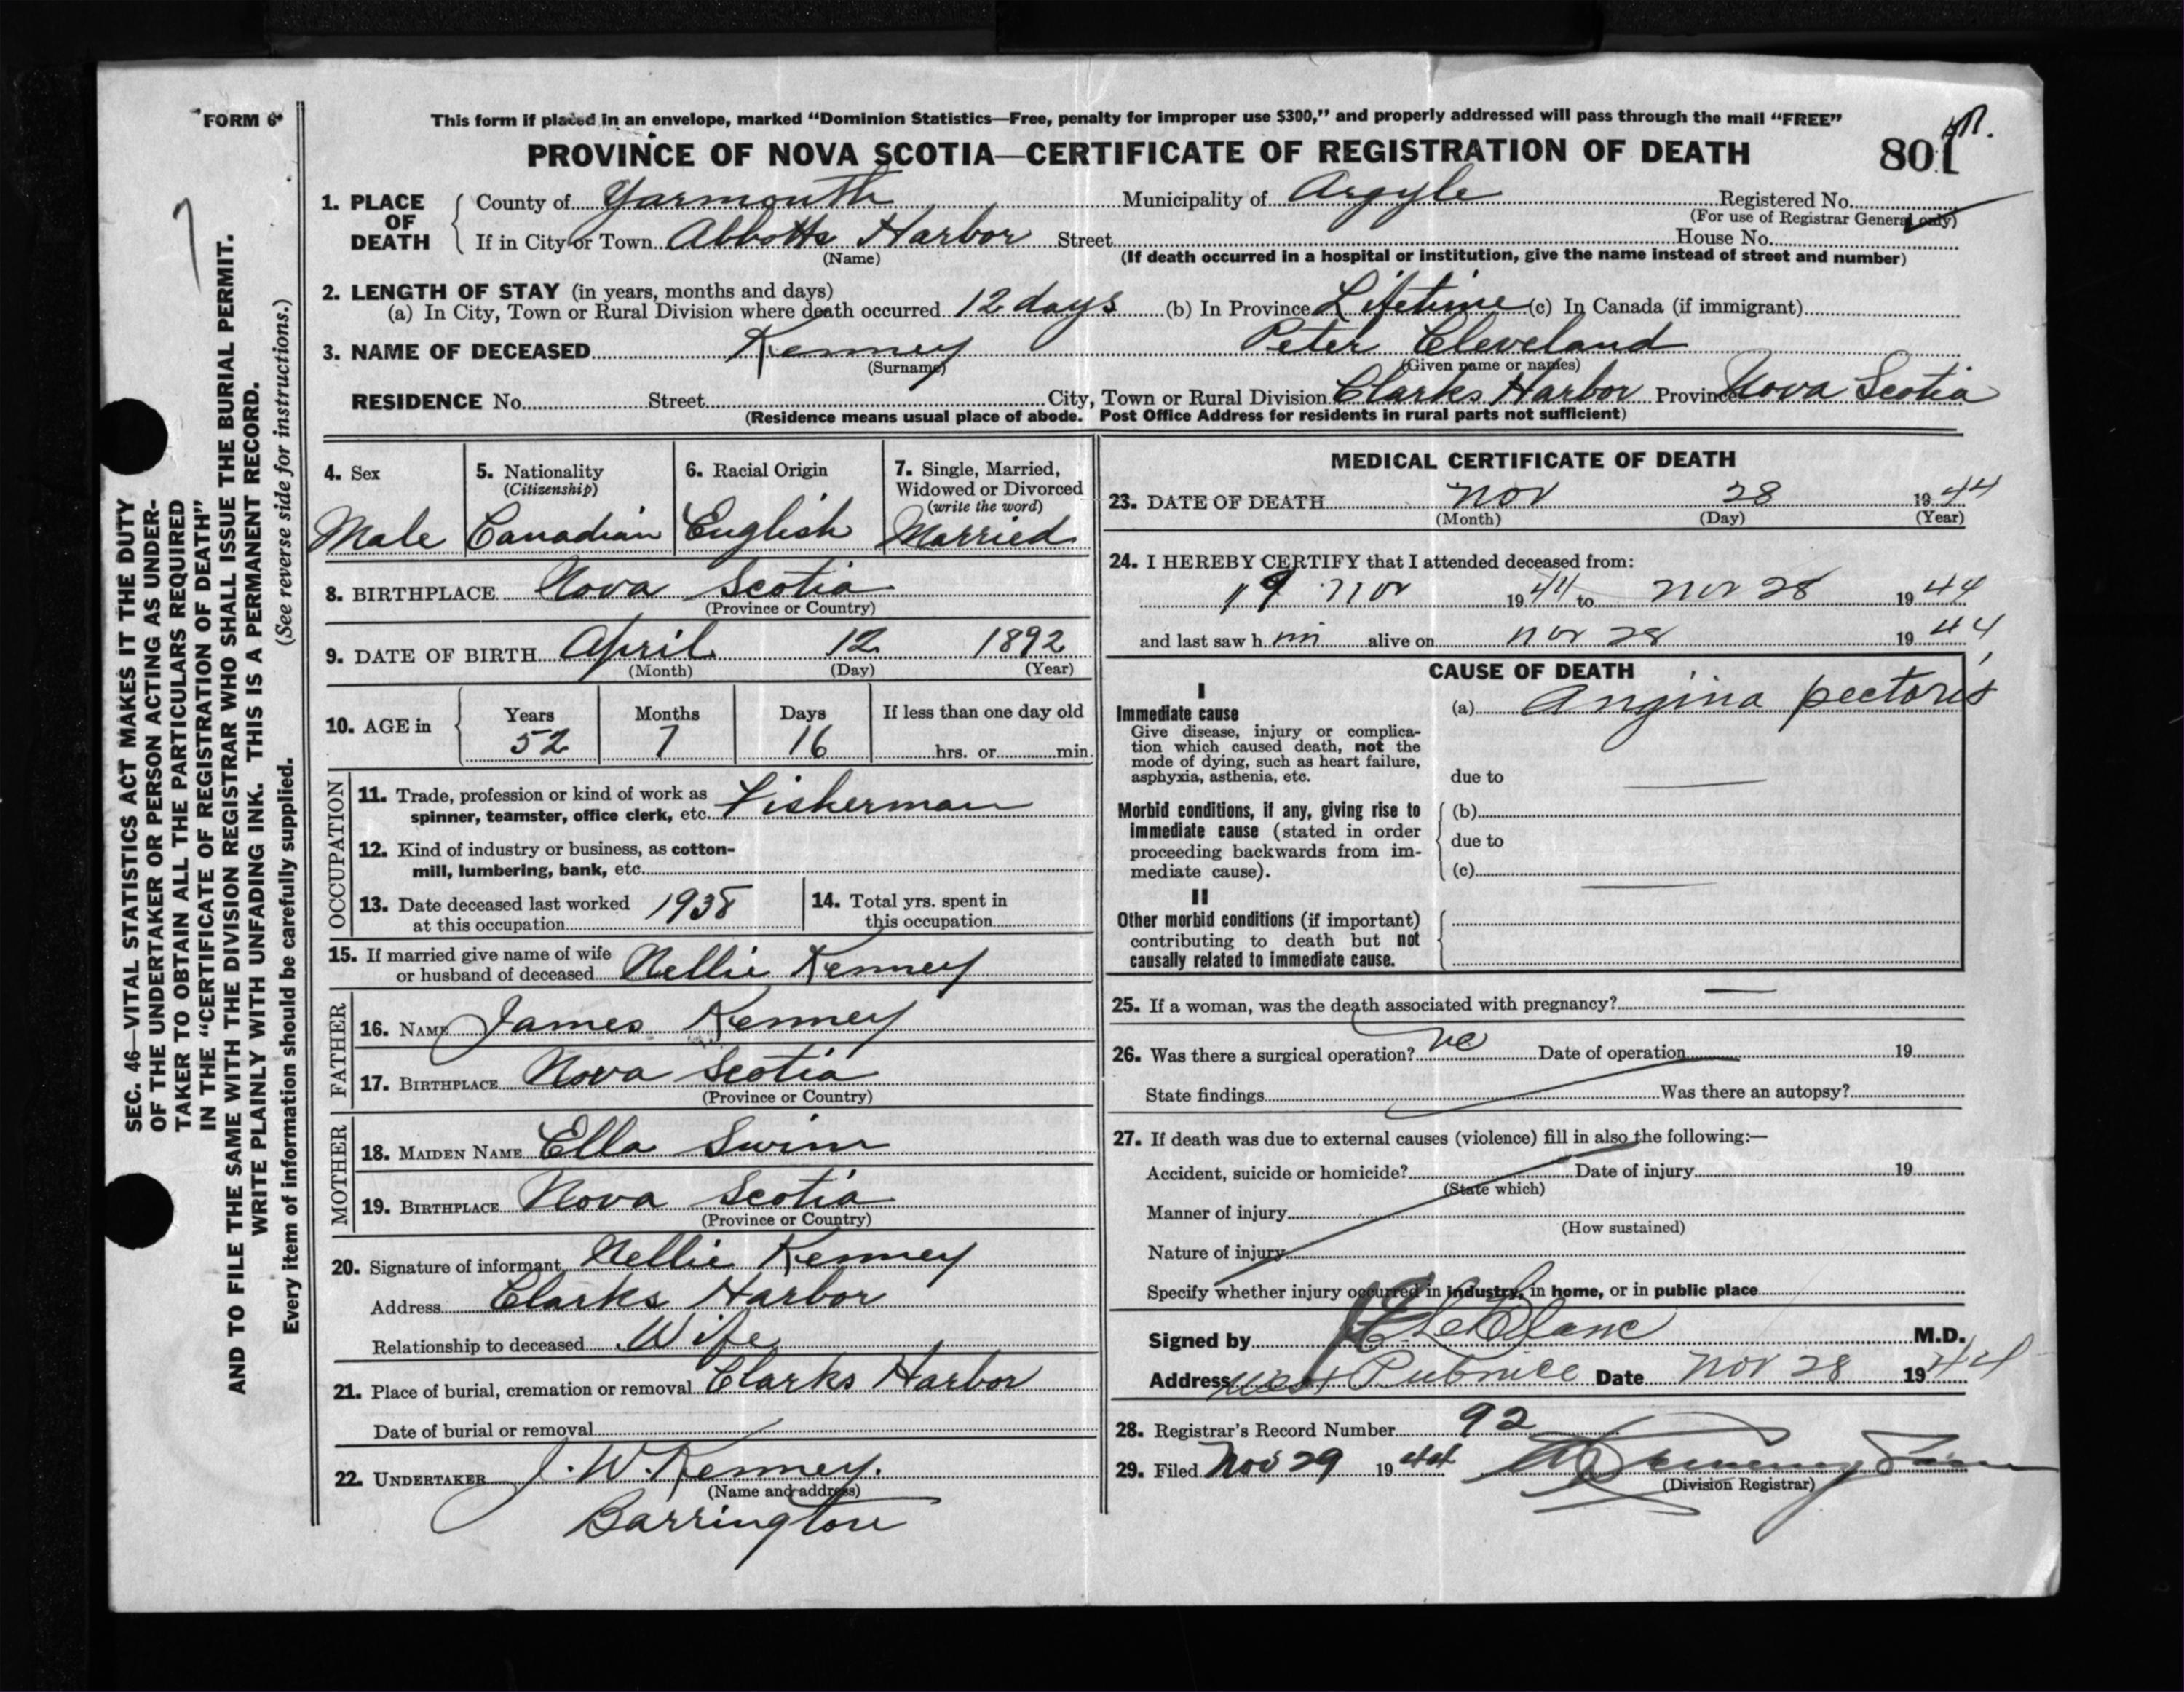 FORM 6
This form if placed in an envelope, marked “Dominion Statistics—Free, penalty for improper use $300,” and properly addressed will pass through the mail “FREE”
PROVINCE OF NOVA SCOTIA—CERTIFICATE OF REGISTRATION OF DEATH
801
1. PLACE OF DEATH
County of Yarmouth Municipality of Argyle Registered No.
(For use of Registrar General only)
If in City or Town Abbotts Harbor Street House No.
(Name) (If death occurred in a hospital or institution, give the name instead of street and number)
2. LENGTH OF STAY (in years, months and days)
(a) In City, Town or Rural Division where death occurred 12 days (b) In Province Lifetime (c) In Canada (if immigrant)
3. NAME OF DECEASED Kenney Peter Cleveland
(Surname) (Given name or names)
RESIDENCE No. Street City, Town or Rural Division Clarks Harbor Province Nova Scotia
(Residence means usual place of abode. Post Office Address for residents in rural parts not sufficient)
4. Sex
Male
5. Nationality
(Citizenship)
Canadian
6. Racial Origin
English
7. Single, Married,
Widowed or Divorced
(write the word)
Married
8. BIRTHPLACE Nova Scotia
(Province or Country)
9. DATE OF BIRTH April 12 1892
(Month) (Day) (Year)
10. AGE in
Years Months Days If less than one day old
52 7 16 hrs. or min.
OCCUPATION
11. Trade, profession or kind of work as
spinner, teamster, office clerk, etc. Fisherman
12. Kind of industry or business, as cotton-
mill, lumbering, bank, etc.
13. Date deceased last worked
at this occupation 1938
14. Total yrs. spent in
this occupation
15. If married give name of wife
or husband of deceased Nellie Kenney
FATHER
16. NAME James Kenney
17. BIRTHPLACE Nova Scotia
(Province or Country)
MOTHER
18. MAIDEN NAME Ella Swim
19. BIRTHPLACE Nova Scotia
(Province or Country)
20. Signature of informant Nellie Kenney
Address Clarks Harbor
Relationship to deceased Wife
21. Place of burial, cremation or removal Clarks Harbor
Date of burial or removal
22. UNDERTAKER J. W. Kenney.
(Name and address)
Barrington
MEDICAL CERTIFICATE OF DEATH
23. DATE OF DEATH Nov 28 1944
(Month) (Day) (Year)
24. I HEREBY CERTIFY that I attended deceased from:
19 Nov 1944 to Nov 28 1944
and last saw him alive on Nov 28 1944
CAUSE OF DEATH
I
Immediate cause
Give disease, injury or complica-
tion which caused death, not the
mode of dying, such as heart failure,
asphyxia, asthenia, etc.
(a) Angina pectoris
due to
Morbid conditions, if any, giving rise to
immediate cause (stated in order
proceeding backwards from im-
mediate cause).
(b)
due to
(c)
II
Other morbid conditions (if important)
contributing to death but not
causally related to immediate cause.
25. If a woman, was the death associated with pregnancy?
26. Was there a surgical operation? no Date of operation 19
State findings Was there an autopsy?
27. If death was due to external causes (violence) fill in also the following:—
Accident, suicide or homicide? Date of injury 19
(State which)
Manner of injury
(How sustained)
Nature of injury
Specify whether injury occurred in industry, in home, or in public place
Signed by LeBlanc M.D.
Address West Pubnico Date Nov 28 1944
28. Registrar's Record Number 92
29. Filed Nov 29 1944
(Division Registrar)
SEC. 46—VITAL STATISTICS ACT MAKES IT THE DUTY
OF THE UNDERTAKER OR PERSON ACTING AS UNDER-
TAKER TO OBTAIN ALL THE PARTICULARS REQUIRED
IN THE “CERTIFICATE OF REGISTRATION OF DEATH”
AND TO FILE THE SAME WITH THE DIVISION REGISTRAR WHO SHALL ISSUE THE BURIAL PERMIT.
WRITE PLAINLY WITH UNFADING INK. THIS IS A PERMANENT RECORD.
(See reverse side for instructions.)
Every item of information should be carefully supplied.